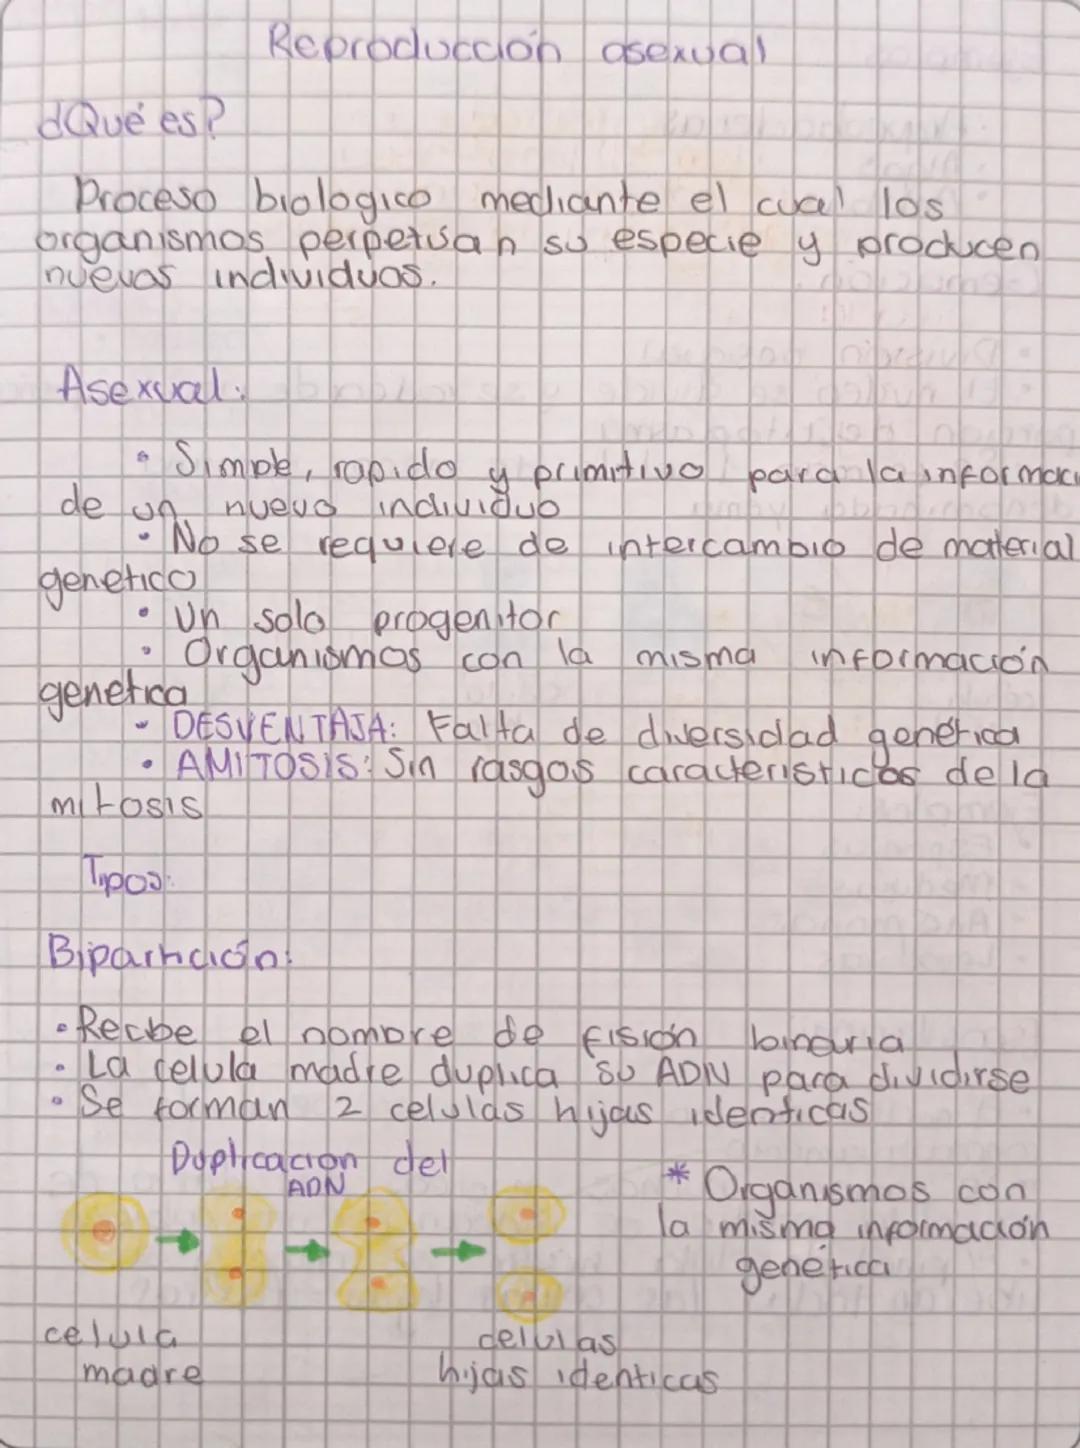 Reproducción asexual
¿Qué es?
Proceso biologico mediante el cual los
organismos perpetuan su especie y producen
nuevos individuos.
Asexual:
• Simple, rapido y primitivo para la informaci
de un nuevo individuo
• No se requiere de intercambio de material
genetico
• Un solo progenitor
• Organismos con la misma información
genetica
• DESVENTAJA: Falta de diversidad genética
• AMITOSIS: Sin rasgos caracteristicos de la
mitosis
Tipos:
Bipartición:
• Recibe el nombre de fisión binaria
• La celula madre duplica su ADN para dividirse
• Se forman 2 celulas hijas identicas
Duplicacion del
ADN
* Organismos con
la misma información
genética
celula
madre
celulas
hijas identicas